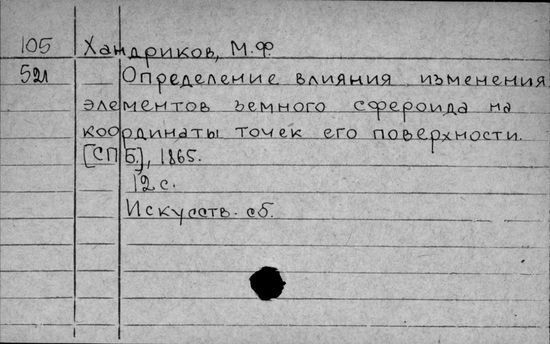 105 Хандриков, М.Ф.
521 Определение влияния изменения
элементов земного сфероида на
координаты точек его поверхности.
[СПБ], 1865.
12 с.
Искусств. сб.